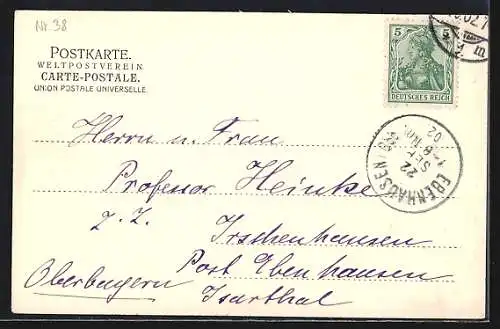 Nr. 38
POSTKARTE.
WELTPOSTVEREIN.
CARTE-POSTALE.
UNION POSTALE UNIVERSELLE.
5 5
DEUTSCHES REICH
EBENHAUSEN
22
SEP
02
Herrn u. Frau
Professor Heinke
z. Z. Irschenhausen
Oberbayern Post Ebenhausen
Isarthal